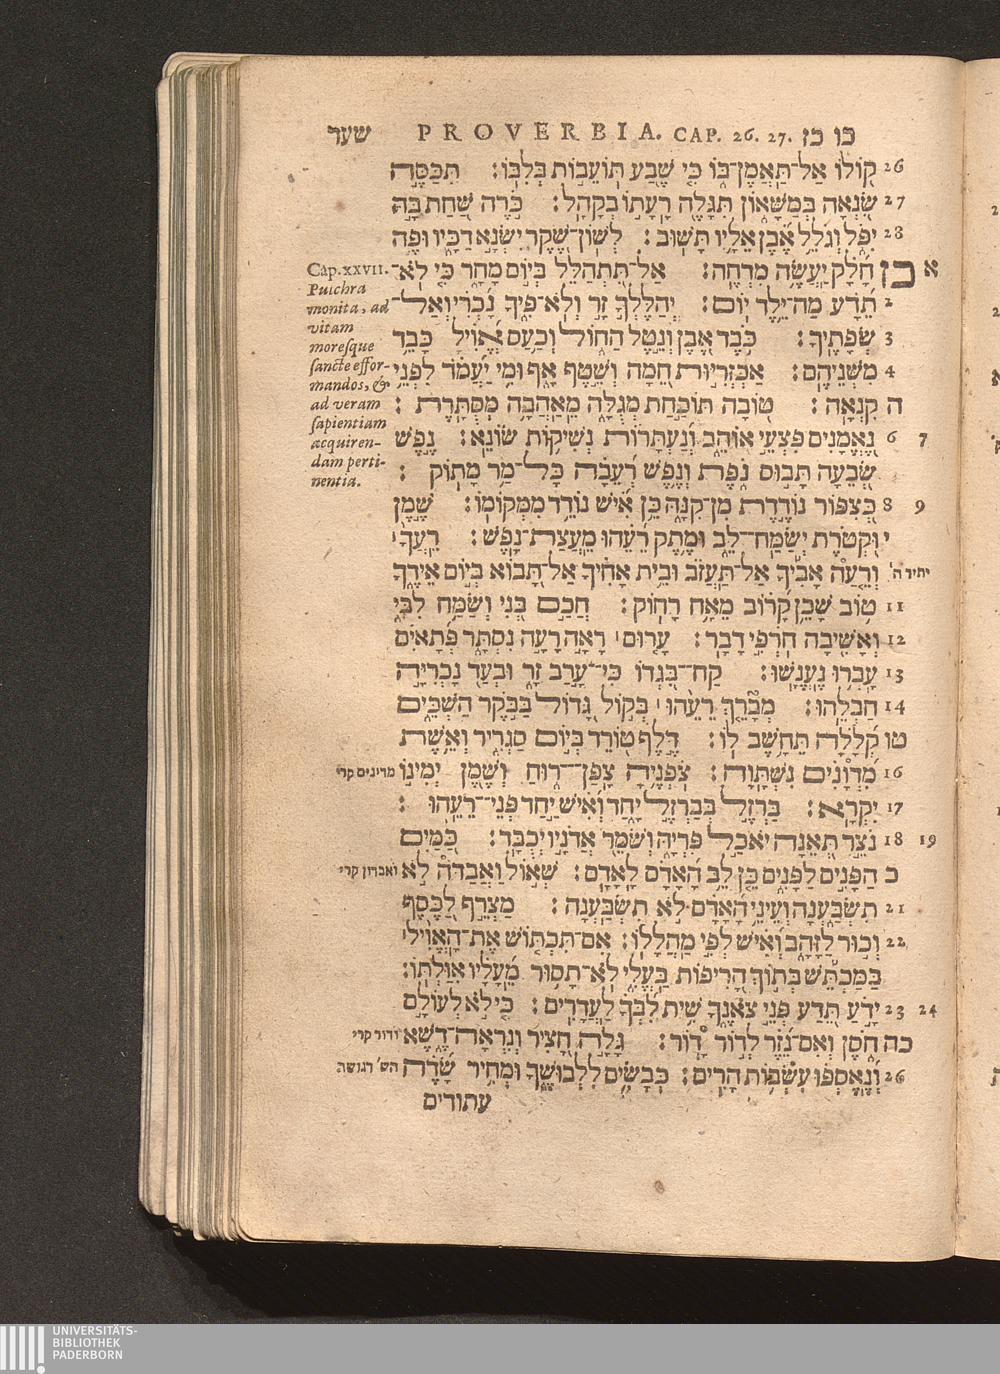 שער PROVERBIA. CAP. 26. 27. כו כז
26 קוֹלוֹ אַל־תַּאֲמֶן־בּוֹ כִּי שֶׁבַע תּוֹעֵבוֹת בְּלִבּוֹ׃ תִּכַּסֶּה
27 שִׂנְאָה בְּמַשָּׁאוֹן תִּגָּלֶה רָעָתוֹ בְקָהָל׃ כֹּרֶה שַּׁחַת בָּהּ
28 יִפֹּל וְגֹלֵל אֶבֶן אֵלָיו תָּשׁוּב׃ לְשׁוֹן־שֶׁקֶר יִשְׂנָא דַכָּיו וּפֶה
א כז חָלָק יַעֲשֶׂה מִדְחֶה׃ אַל־תִּתְהַלֵּל בְּיוֹם מָחָר כִּי לֹא־
2 תֵדַע מַה־יֵּלֶד יוֹם׃ יְהַלֶּלְךָ זָר וְלֹא־פִיךָ נָכְרִי וְאַל־
3 שְׂפָתֶיךָ׃ כֹּבֶד אֶבֶן וְנֵטֶל הַחוֹל וְכַעַס אֱוִיל כָּבֵד
4 מִשְּׁנֵיהֶם׃ אַכְזְרִיּוּת חֵמָה וְשֶׁטֶף אָף וּמִי יַעֲמֹד לִפְנֵי
ה קִנְאָה׃ טוֹבָה תּוֹכַחַת מְגֻלָּה מֵאַהֲבָה מְסֻתָּרֶת׃
6 7 נֶאֱמָנִים פִּצְעֵי אוֹהֵב וְנַעְתָּרוֹת נְשִׁיקוֹת שׂוֹנֵא׃ נֶפֶשׁ
שְׂבֵעָה תָּבוּס נֹפֶת וְנֶפֶשׁ רְעֵבָה כָּל־מַר מָתוֹק׃
8 9 כְּצִפּוֹר נוֹדֶדֶת מִן־קִנָּהּ כֵּן אִישׁ נוֹדֵד מִמְּקוֹמוֹ׃ שֶׁמֶן
י וּקְטֹרֶת יְשַׂמַּח־לֵב וּמֶתֶק רֵעֵהוּ מֵעֲצַת־נָפֶשׁ׃ רֵעֲךָ
וְרֵעַה אָבִיךָ אַל־תַּעֲזֹב וּבֵית אָחִיךָ אַל־תָּבוֹא בְּיוֹם אֵידֶךָ
11 טוֹב שָׁכֵן קָרוֹב מֵאָח רָחוֹק׃ חֲכַם בְּנִי וְשַׂמַּח לִבִּי
12 וְאָשִׁיבָה חֹרְפִי דָבָר׃ עָרוּם רָאָה רָעָה נִסְתָּר פְּתָאיִם
13 עָבְרוּ נֶעֱנָשׁוּ׃ קַח־בִּגְדוֹ כִּי־עָרַב זָר וּבְעַד נָכְרִיָּה
14 חַבְלֵהוּ׃ מְבָרֵךְ רֵעֵהוּ בְּקוֹל גָּדוֹל בַּבֹּקֶר הַשְׁכֵּים
טו קְלָלָה תֵּחָשֶׁב לוֹ׃ דֶּלֶף טוֹרֵד בְּיוֹם סַגְרִיר וְאֵשֶׁת
16 מִדְוָנִים נִשְׁתָּוָה׃ צֹפְנֶיהָ צָפַן־רוּחַ וְשֶׁמֶן יְמִינוֹ
17 יִקְרָא׃ בַּרְזֶל בְּבַרְזֶל יָחַד וְאִישׁ יַחַד פְּנֵי־רֵעֵהוּ׃
18 19 נֹצֵר תְּאֵנָה יֹאכַל פִּרְיָהּ וְשֹׁמֵר אֲדֹנָיו יְכֻבָּד׃ כַּמַּיִם
כ הַפָּנִים לַפָּנִים כֵּן לֵב הָאָדָם לָאָדָם׃ שְׁאוֹל וַאֲבַדֹּה לֹא
21 תִשְׂבַּעְנָה וְעֵינֵי הָאָדָם לֹא תִשְׂבַּעְנָה׃ מַצְרֵף לַכֶּסֶף
22 וְכוּר לַזָּהָב וְאִישׁ לְפִי מַהֲלָלוֹ׃ אִם־תִּכְתּוֹשׁ אֶת־הָאֱוִיל
בַּמַּכְתֵּשׁ בְּתוֹךְ הָרִיפוֹת בַּעֱלִי לֹא־תָסוּר מֵעָלָיו אִוַּלְתּוֹ׃
23 24 יָדֹעַ תֵּדַע פְּנֵי צֹאנֶךָ שִׁית לִבְּךָ לַעֲדָרִים׃ כִּי לֹא לְעוֹלָם
כה חֹסֶן וְאִם־נֵזֶר לְדוֹר דּוֹר׃ גָּלָה חָצִיר וְנִרְאָה־דֶשֶׁא
26 וְנֶאֶסְפוּ עִשְּׂבוֹת הָרִים׃ כְּבָשִׂים לִלְבוּשֶׁךָ וּמְחִיר שָׂדֶה
עתודים
Cap.xxvii.
Pulchra
monita, ad
vitam
moresque
sancte effor-
mandos, &
ad veram
sapientiam
acquiren-
dam perti-
nentia.
יתיר ה'
מדינים קרי
ואבדון קרי
ודור קרי
הש' דגושה
UNIVERSITÄTS-
BIBLIOTHEK
PADERBORN